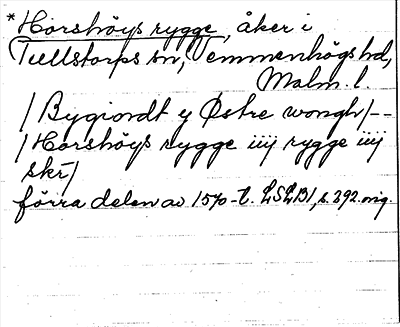 *Horshöys rygge, åker i
Tullstorps sn, Vemmenhögs hd,
Malm. l.
/Bygiordt y Østre wongh/--
/Horshöys rygge iiij rygge iiij
skr-/
förra delen av 1570-t. LSLB1, s. 292. orig.